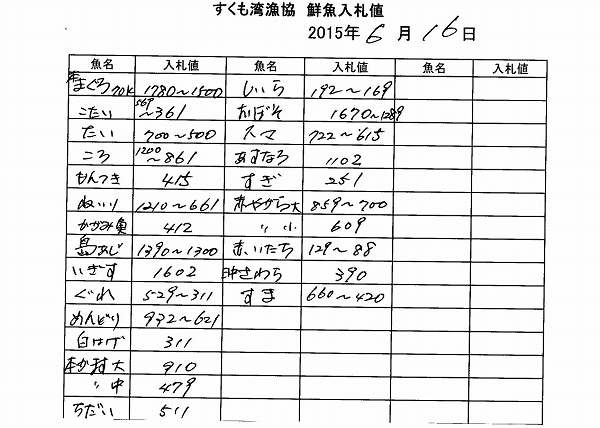 すくも湾漁協 鮮魚入札値
2015年 6 月 16 日
魚名 入札値 魚名 入札値 魚名 入札値
本まぐろ70K 1780~1500 しいら 192~169
こたい 569~361 おぼそ 1670~1289
たい 700~500 スマ 722~615
ころ 1200~861 あすなろ 1102
もんつき 415 すぎ 251
ぬいり 1210~661 赤やがら大 859~700
かがみ魚 412 〃 小 609
島あじ 1390~1300 赤いたち 129~88
いぎす 1602 沖さわら 390
ぐれ 529~311 すま 660~420
めんどり 932~621
白はげ 311
本か 大 910
〃 中 479
ちだい 511